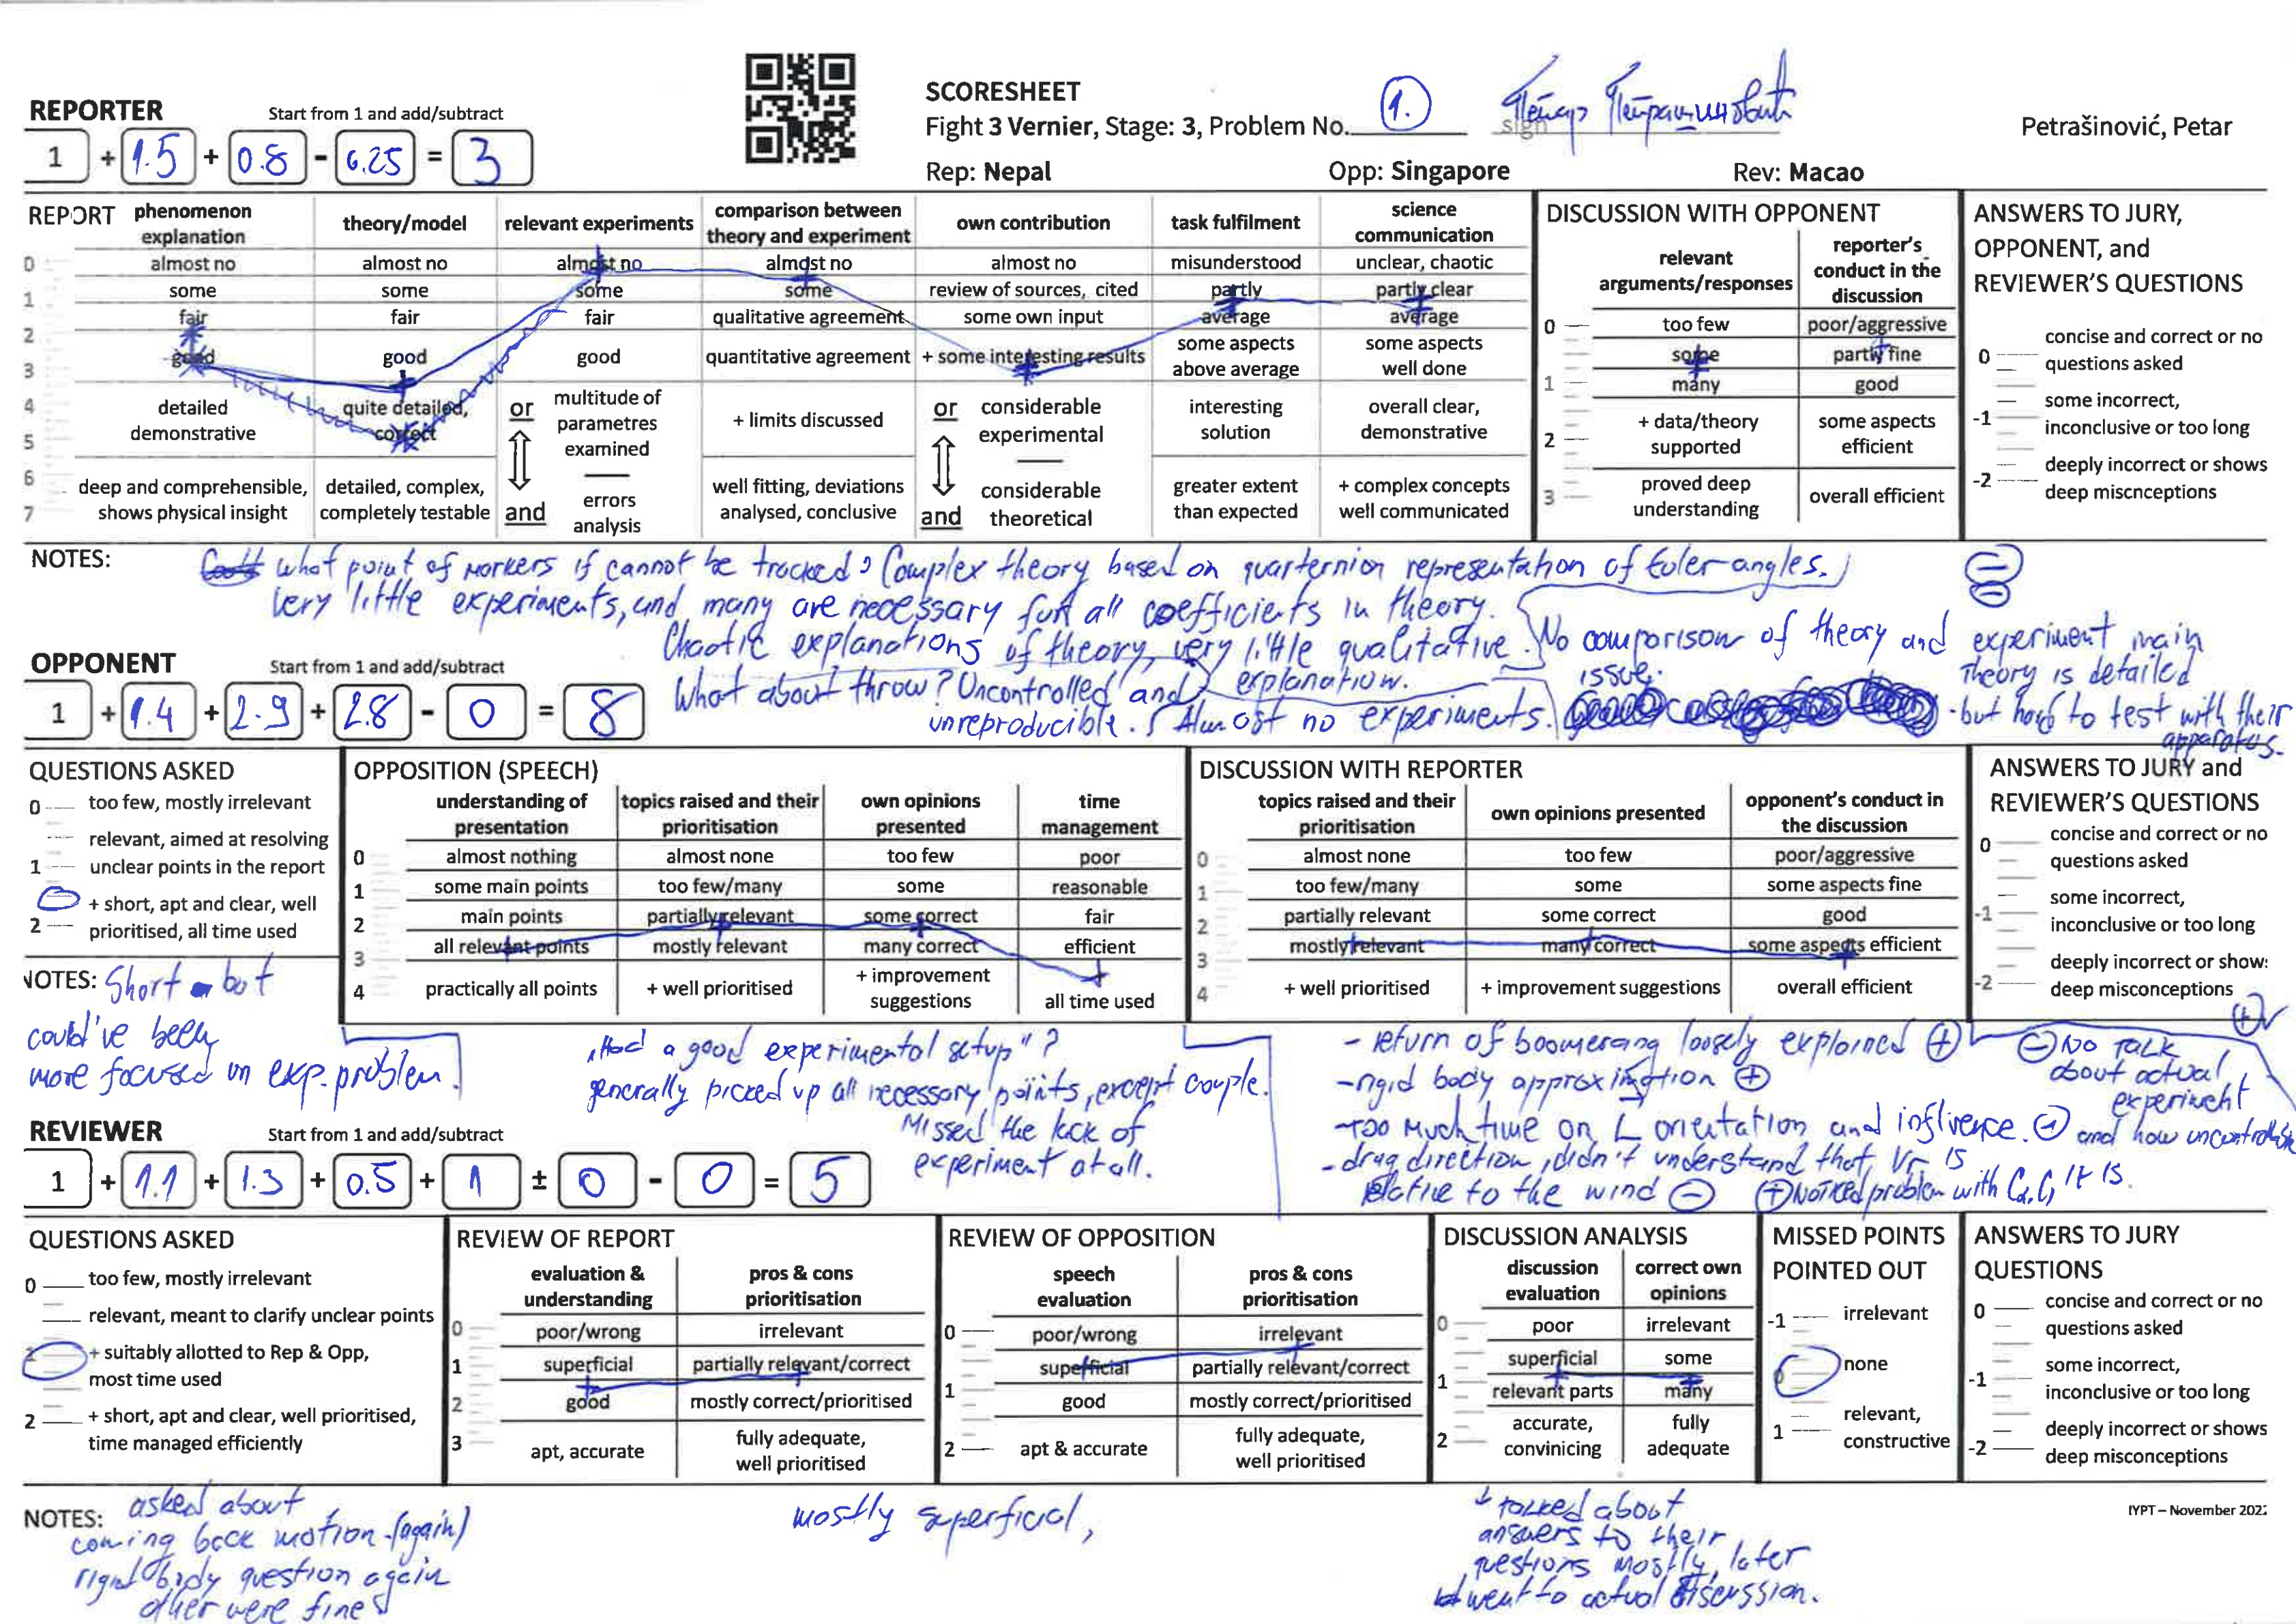 SCORESHEET
Fight 3 Vernier, Stage: 3, Problem No. 1.
sign
Petrašinović, Petar
Rep: Nepal
Opp: Singapore
Rev: Macao
REPORTER
Start from 1 and add/subtract
1 + 1.5 + 0.8 - 0.25 = 3
REPORT
phenomenon explanation
theory/model
relevant experiments
comparison between theory and experiment
own contribution
task fulfilment
science communication
0
almost no
almost no
almost no
almost no
almost no
misunderstood
unclear, chaotic
1
some
some
some
some
review of sources, cited
partly
partly clear
2
fair
fair
fair
qualitative agreement
some own input
average
average
3
good
good
good
quantitative agreement
+ some interesting results
some aspects above average
some aspects well done
4
5
detailed demonstrative
quite detailed, correct
or
multitude of parametres examined
+ limits discussed
or
considerable experimental
interesting solution
overall clear, demonstrative
6
7
deep and comprehensible, shows physical insight
detailed, complex, completely testable
and
errors analysis
well fitting, deviations analysed, conclusive
and
considerable theoretical
greater extent than expected
+ complex concepts well communicated
DISCUSSION WITH OPPONENT
relevant arguments/responses
reporter's conduct in the discussion
0
too few
poor/aggressive
some
partly fine
1
many
good
2
+ data/theory supported
some aspects efficient
3
proved deep understanding
overall efficient
ANSWERS TO JURY,
OPPONENT, and
REVIEWER'S QUESTIONS
0
concise and correct or no questions asked
-1
some incorrect, inconclusive or too long
-2
deeply incorrect or shows deep miscnceptions
NOTES:
what point of markers if cannot be tracked? Complex theory based on quarternion representation of Euler angles.
Very little experiments, and many are necessary for all coefficients in theory.
Chaotic explanations of theory, very little qualitative explanation.
What about throw? Uncontrolled and unreproducible.
Almost no experiments.
No comparison of theory and experiment main issue.
Theory is detailed
- but hard to test with their apparatus.
OPPONENT
Start from 1 and add/subtract
1 + 1.4 + 2.9 + 2.8 - 0 = 8
QUESTIONS ASKED
0
too few, mostly irrelevant
1
relevant, aimed at resolving unclear points in the report
2
+ short, apt and clear, well prioritised, all time used
OPPOSITION (SPEECH)
understanding of presentation
topics raised and their prioritisation
own opinions presented
time management
0
almost nothing
almost none
too few
poor
1
some main points
too few/many
some
reasonable
2
main points
partially relevant
some correct
fair
3
all relevant points
mostly relevant
many correct
efficient
4
practically all points
+ well prioritised
+ improvement suggestions
all time used
DISCUSSION WITH REPORTER
topics raised and their prioritisation
own opinions presented
opponent's conduct in the discussion
0
almost none
too few
poor/aggressive
1
too few/many
some
some aspects fine
2
partially relevant
some correct
good
3
mostly relevant
many correct
some aspects efficient
4
+ well prioritised
+ improvement suggestions
overall efficient
ANSWERS TO JURY and
REVIEWER'S QUESTIONS
0
concise and correct or no questions asked
-1
some incorrect, inconclusive or too long
-2
deeply incorrect or show: deep misconceptions
NOTES: Short but
could've been
more focused on exp. problem.
"Had a good experimental setup"?
generally picked up all necessary points, except couple.
Missed the lack of
experiment at all.
- return of boomerang loosely explained +
- rigid body approximation +
- Too much time on L orientation and influence. -
- drag direction, didn't understand that Vr is
relative to the wind -
+ Noticed problem with it is.
- No talk
about actual
experiment
and how
REVIEWER
Start from 1 and add/subtract
1 + 1.1 + 1.3 + 0.5 + 1 ± 0 - 0 = 5
QUESTIONS ASKED
0
too few, mostly irrelevant
relevant, meant to clarify unclear points
+ suitably allotted to Rep & Opp, most time used
2
+ short, apt and clear, well prioritised, time managed efficiently
REVIEW OF REPORT
evaluation & understanding
pros & cons prioritisation
0
poor/wrong
irrelevant
1
superficial
partially relevant/correct
2
good
mostly correct/prioritised
3
apt, accurate
fully adequate, well prioritised
REVIEW OF OPPOSITION
speech evaluation
pros & cons prioritisation
0
poor/wrong
irrelevant
superficial
partially relevant/correct
1
good
mostly correct/prioritised
2
apt & accurate
fully adequate, well prioritised
DISCUSSION ANALYSIS
discussion evaluation
correct own opinions
0
poor
irrelevant
superficial
some
1
relevant parts
many
2
accurate, convinicing
fully adequate
MISSED POINTS
POINTED OUT
-1
irrelevant
0
none
1
relevant, constructive
ANSWERS TO JURY
QUESTIONS
0
concise and correct or no questions asked
-1
some incorrect, inconclusive or too long
-2
deeply incorrect or shows deep misconceptions
NOTES: asked about
coming back motion (again)
rigid body question again
other were fine
mostly superficial,
talked about
answers to their
questions mostly, later
went to actual discussion.
IYPT – November 2022